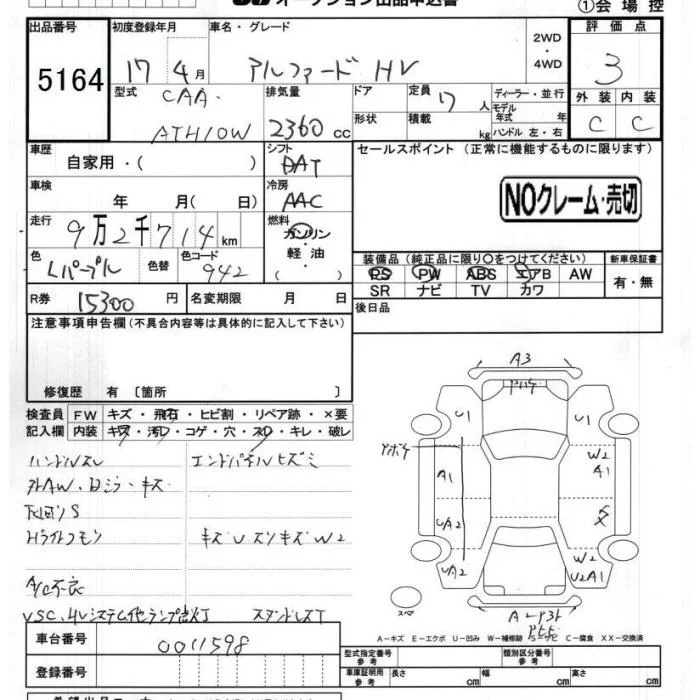 オークション出品申込書
①会場控
出品番号
5164
初度登録年月
17 4月
車名・グレード
アルファード HV
2WD
・
4WD
評価点
3
型式
CAA-
ATH10W
排気量
2360 cc
ドア
形状
定員
7 人
積載 kg
ディーラー・並行
モデル
年式 年
ハンドル 左・右
外装
C
内装
C
車歴
自家用・( )
シフト
DAT
セールスポイント (正常に機能するものに限ります)
NOクレーム・売切
車検
年 月( 日)
冷房
AAC
走行
9万2千714km
燃料
ガソリン
・
軽油
( )
色
Lパープル
色替
色コード
942
装備品 (純正品に限り○をつけてください)
PS PW ABS エアB AW
SR ナビ TV カワ
新車保証書
有・無
R券
15300 円
名変期限 月 日
後日品
注意事項申告欄(不具合内容等は具体的に記入して下さい)
修復歴 有 〔箇所 〕
検査員
記入欄
FW キズ・飛石・ヒビ割・リペア跡・×要
内装 キズ・汚レ・コゲ・穴・スレ・キレ・破レ
ハンドルスレ
エンドパネルヒズミ
外AW、ロミラ・キズ
下回りS
Hライトクモン
キズUスリキズW2
A/C不良
VSC、HVシステム他ランプ点灯
A3
U1
U1
A1
UA2
UA2
W2
A1
W2
U2A1
スペア
A−キズ E−エクボ U−凹み W−補修跡 S−サビ C−腐食 XX−交換済
車台番号
0011598
登録番号
型式指定番号
参考
類別区分番号
参考
車庫証明用
参考
長さ cm
幅 cm
高さ cm